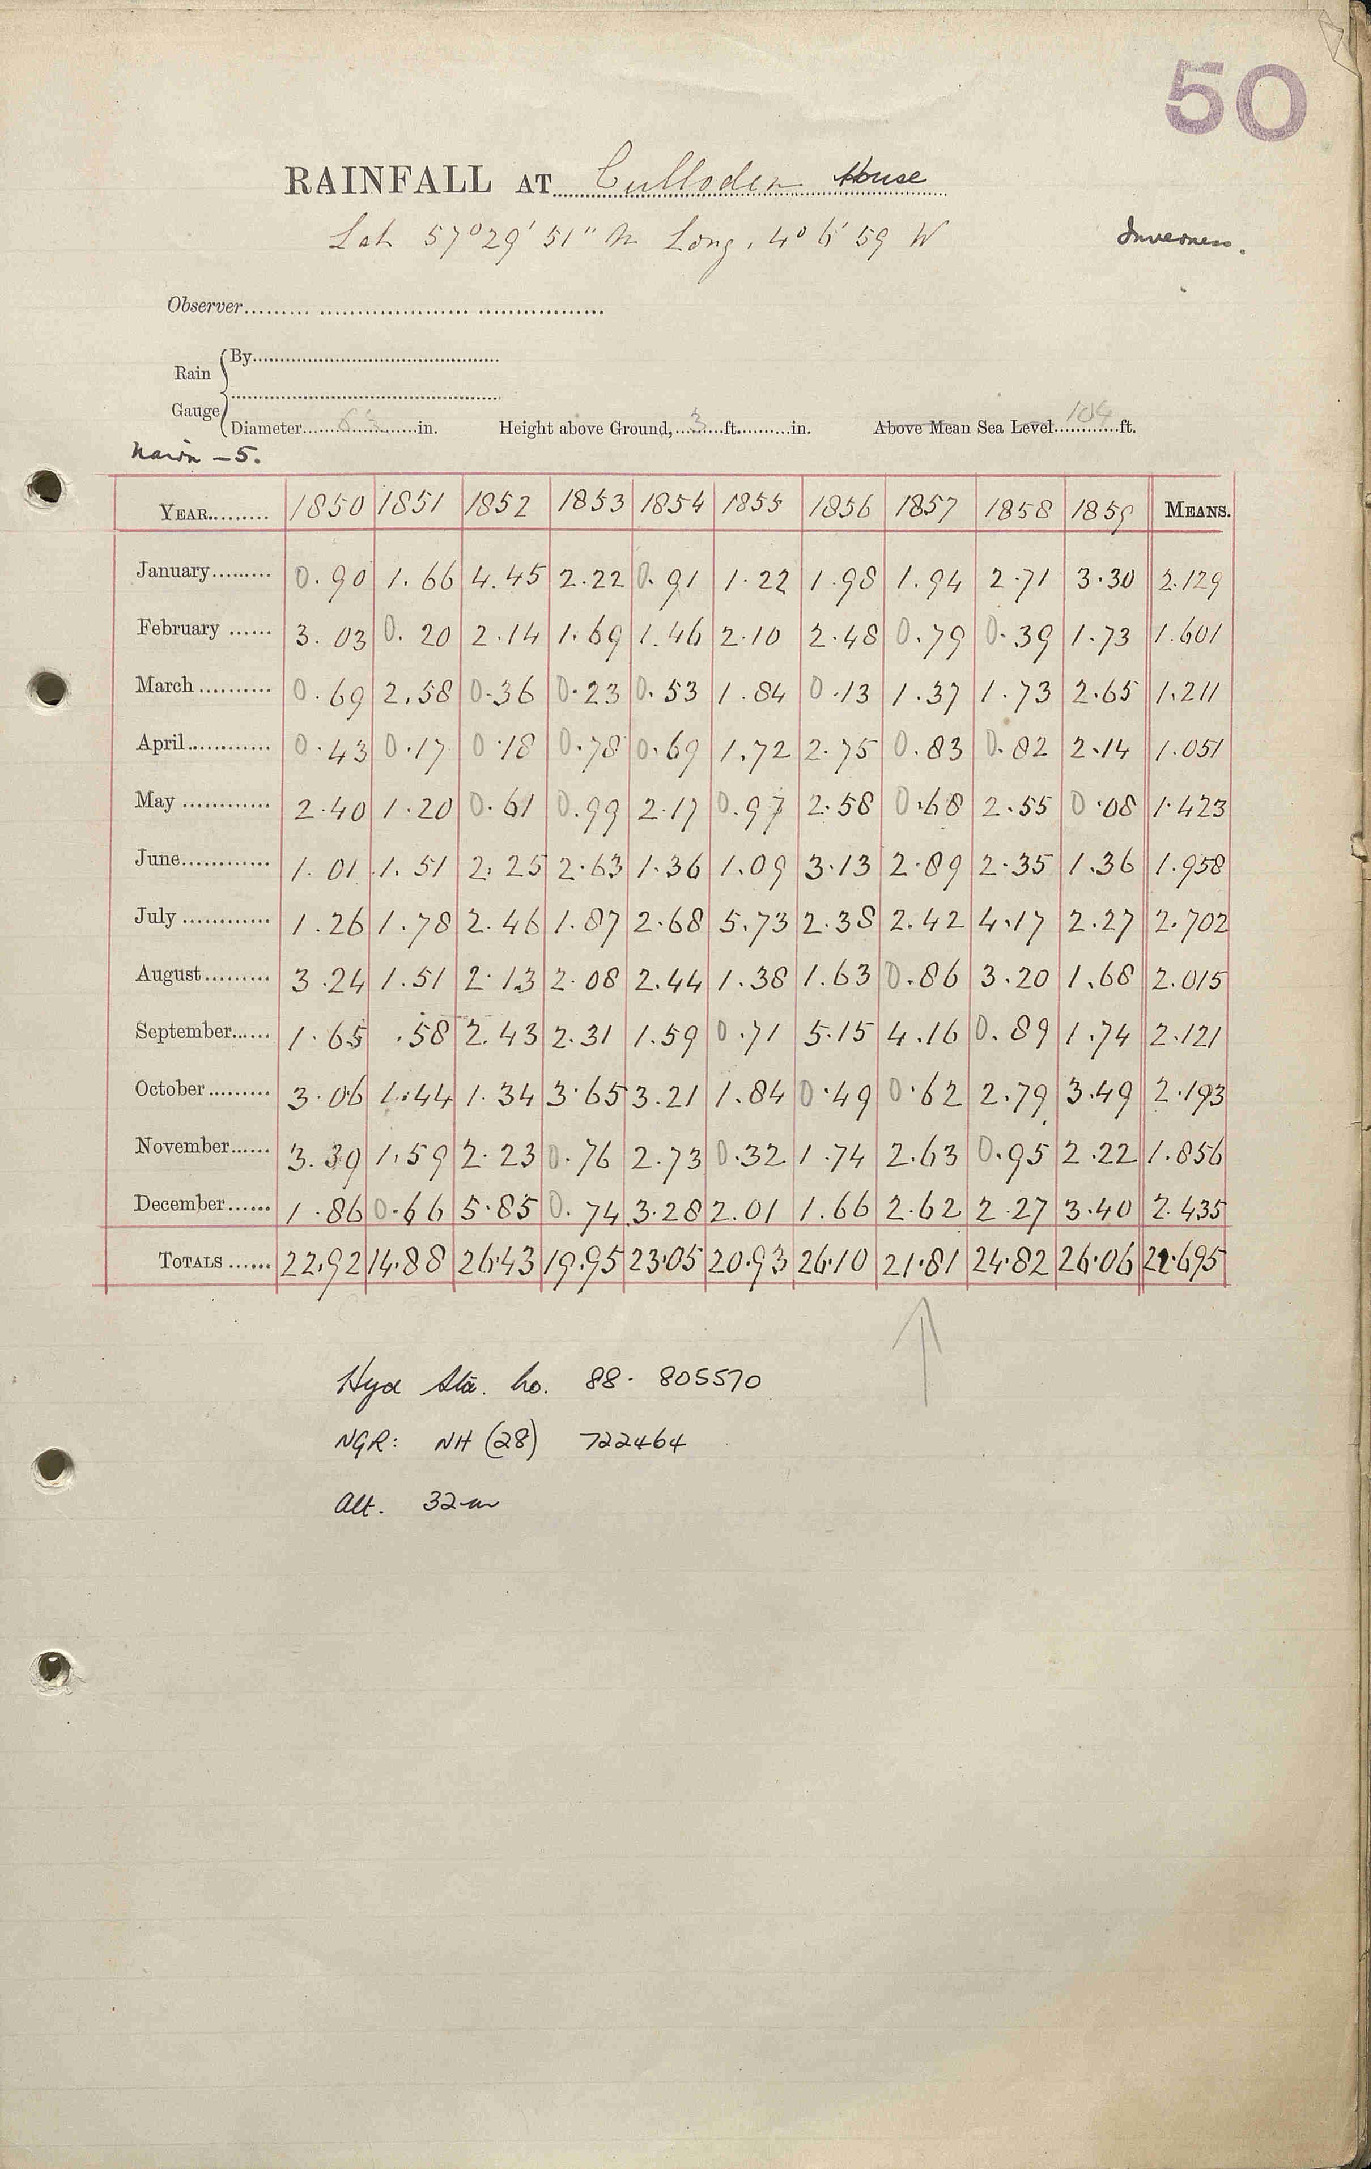 50
RAINFALL AT Culloden House
Lat 57° 29' 51" N Long. 4° 6' 59 W
Inverness.
Observer
Rain Gauge
By
Diameter in. Height above Ground, 3 ft. in. Above Mean Sea Level 104 ft.
Nairn - 5.
YEAR 1850 1851 1852 1853 1854 1855 1856 1857 1858 1859 MEANS.
January 0.90 1.66 4.45 2.22 0.91 1.22 1.98 1.94 2.71 3.30 2.129
February 3.03 0.20 2.14 1.69 1.46 2.10 2.48 0.79 0.39 1.73 1.601
March 0.69 2.58 0.36 0.23 0.53 1.84 0.13 1.37 1.73 2.65 1.211
April 0.43 0.17 0.18 0.78 0.69 1.72 2.75 0.83 0.82 2.14 1.051
May 2.40 1.20 0.61 0.99 2.17 0.97 2.58 0.68 2.55 0.08 1.423
June 1.01 1.51 2.25 2.63 1.36 1.09 3.13 2.89 2.35 1.36 1.958
July 1.26 1.78 2.46 1.87 2.68 5.73 2.38 2.42 4.17 2.27 2.702
August 3.24 1.51 2.13 2.08 2.44 1.38 1.63 0.86 3.20 1.68 2.015
September 1.65 .58 2.43 2.31 1.59 0.71 5.15 4.16 0.89 1.74 2.121
October 3.06 1.44 1.34 3.65 3.21 1.84 0.49 0.62 2.79 3.49 2.193
November 3.39 1.59 2.23 0.76 2.73 0.32 1.74 2.63 0.95 2.22 1.856
December 1.86 0.66 5.85 0.74 3.28 2.01 1.66 2.62 2.27 3.40 2.435
TOTALS 22.92 14.88 26.43 19.95 23.05 20.93 26.10 21.81 24.82 26.06 22.695
Hyd Sta. No. 88. 805570
NGR: NH (28) 722464
Alt. 32m